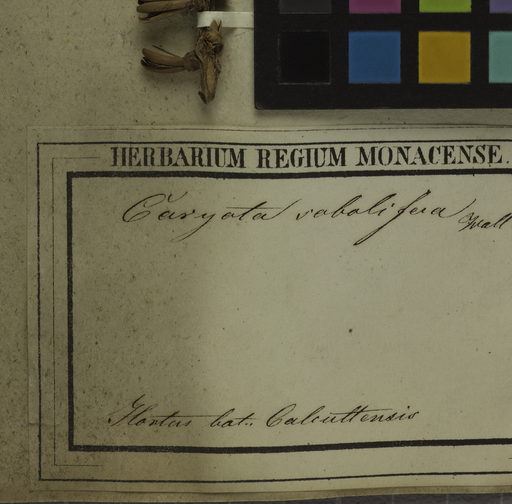 HERBARIUM REGIUM MONACENSE.
Caryota sobolifera Wall
Hortus bot. Calcuttensis